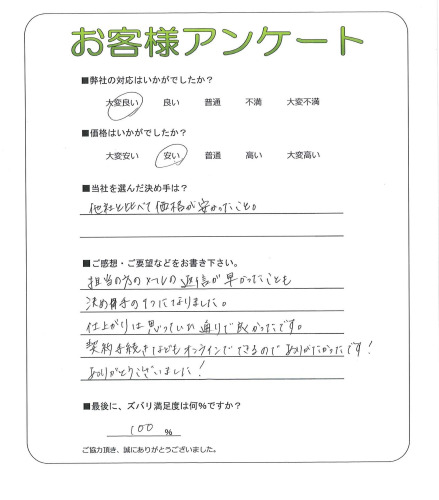 お客様アンケート
■弊社の対応はいかがでしたか？
大変良い 良い 普通 不満 大変不満
■価格はいかがでしたか？
大変安い 安い 普通 高い 大変高い
■当社を選んだ決め手は？
他社と比べて価格が安かったこと。
■ご感想・ご要望などをお書き下さい。
担当の方のメールの返信が早かったことも
決め手の1つになりました。
仕上がりは思っていた通りで良かったです。
契約手続きなどもオンラインでできるのでありがたかったです！
ありがとうございました！
■最後に、ズバリ満足度は何%ですか？
100 %
ご協力頂き、誠にありがとうございました。